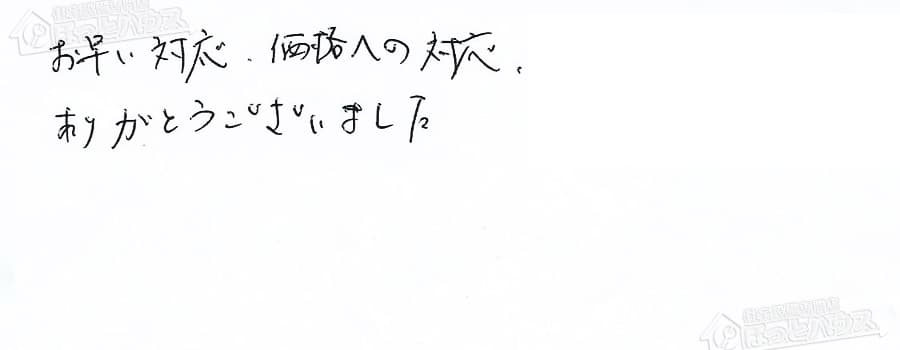 お早い対応、価格への対応、
ありがとうございました
ほっとハウス